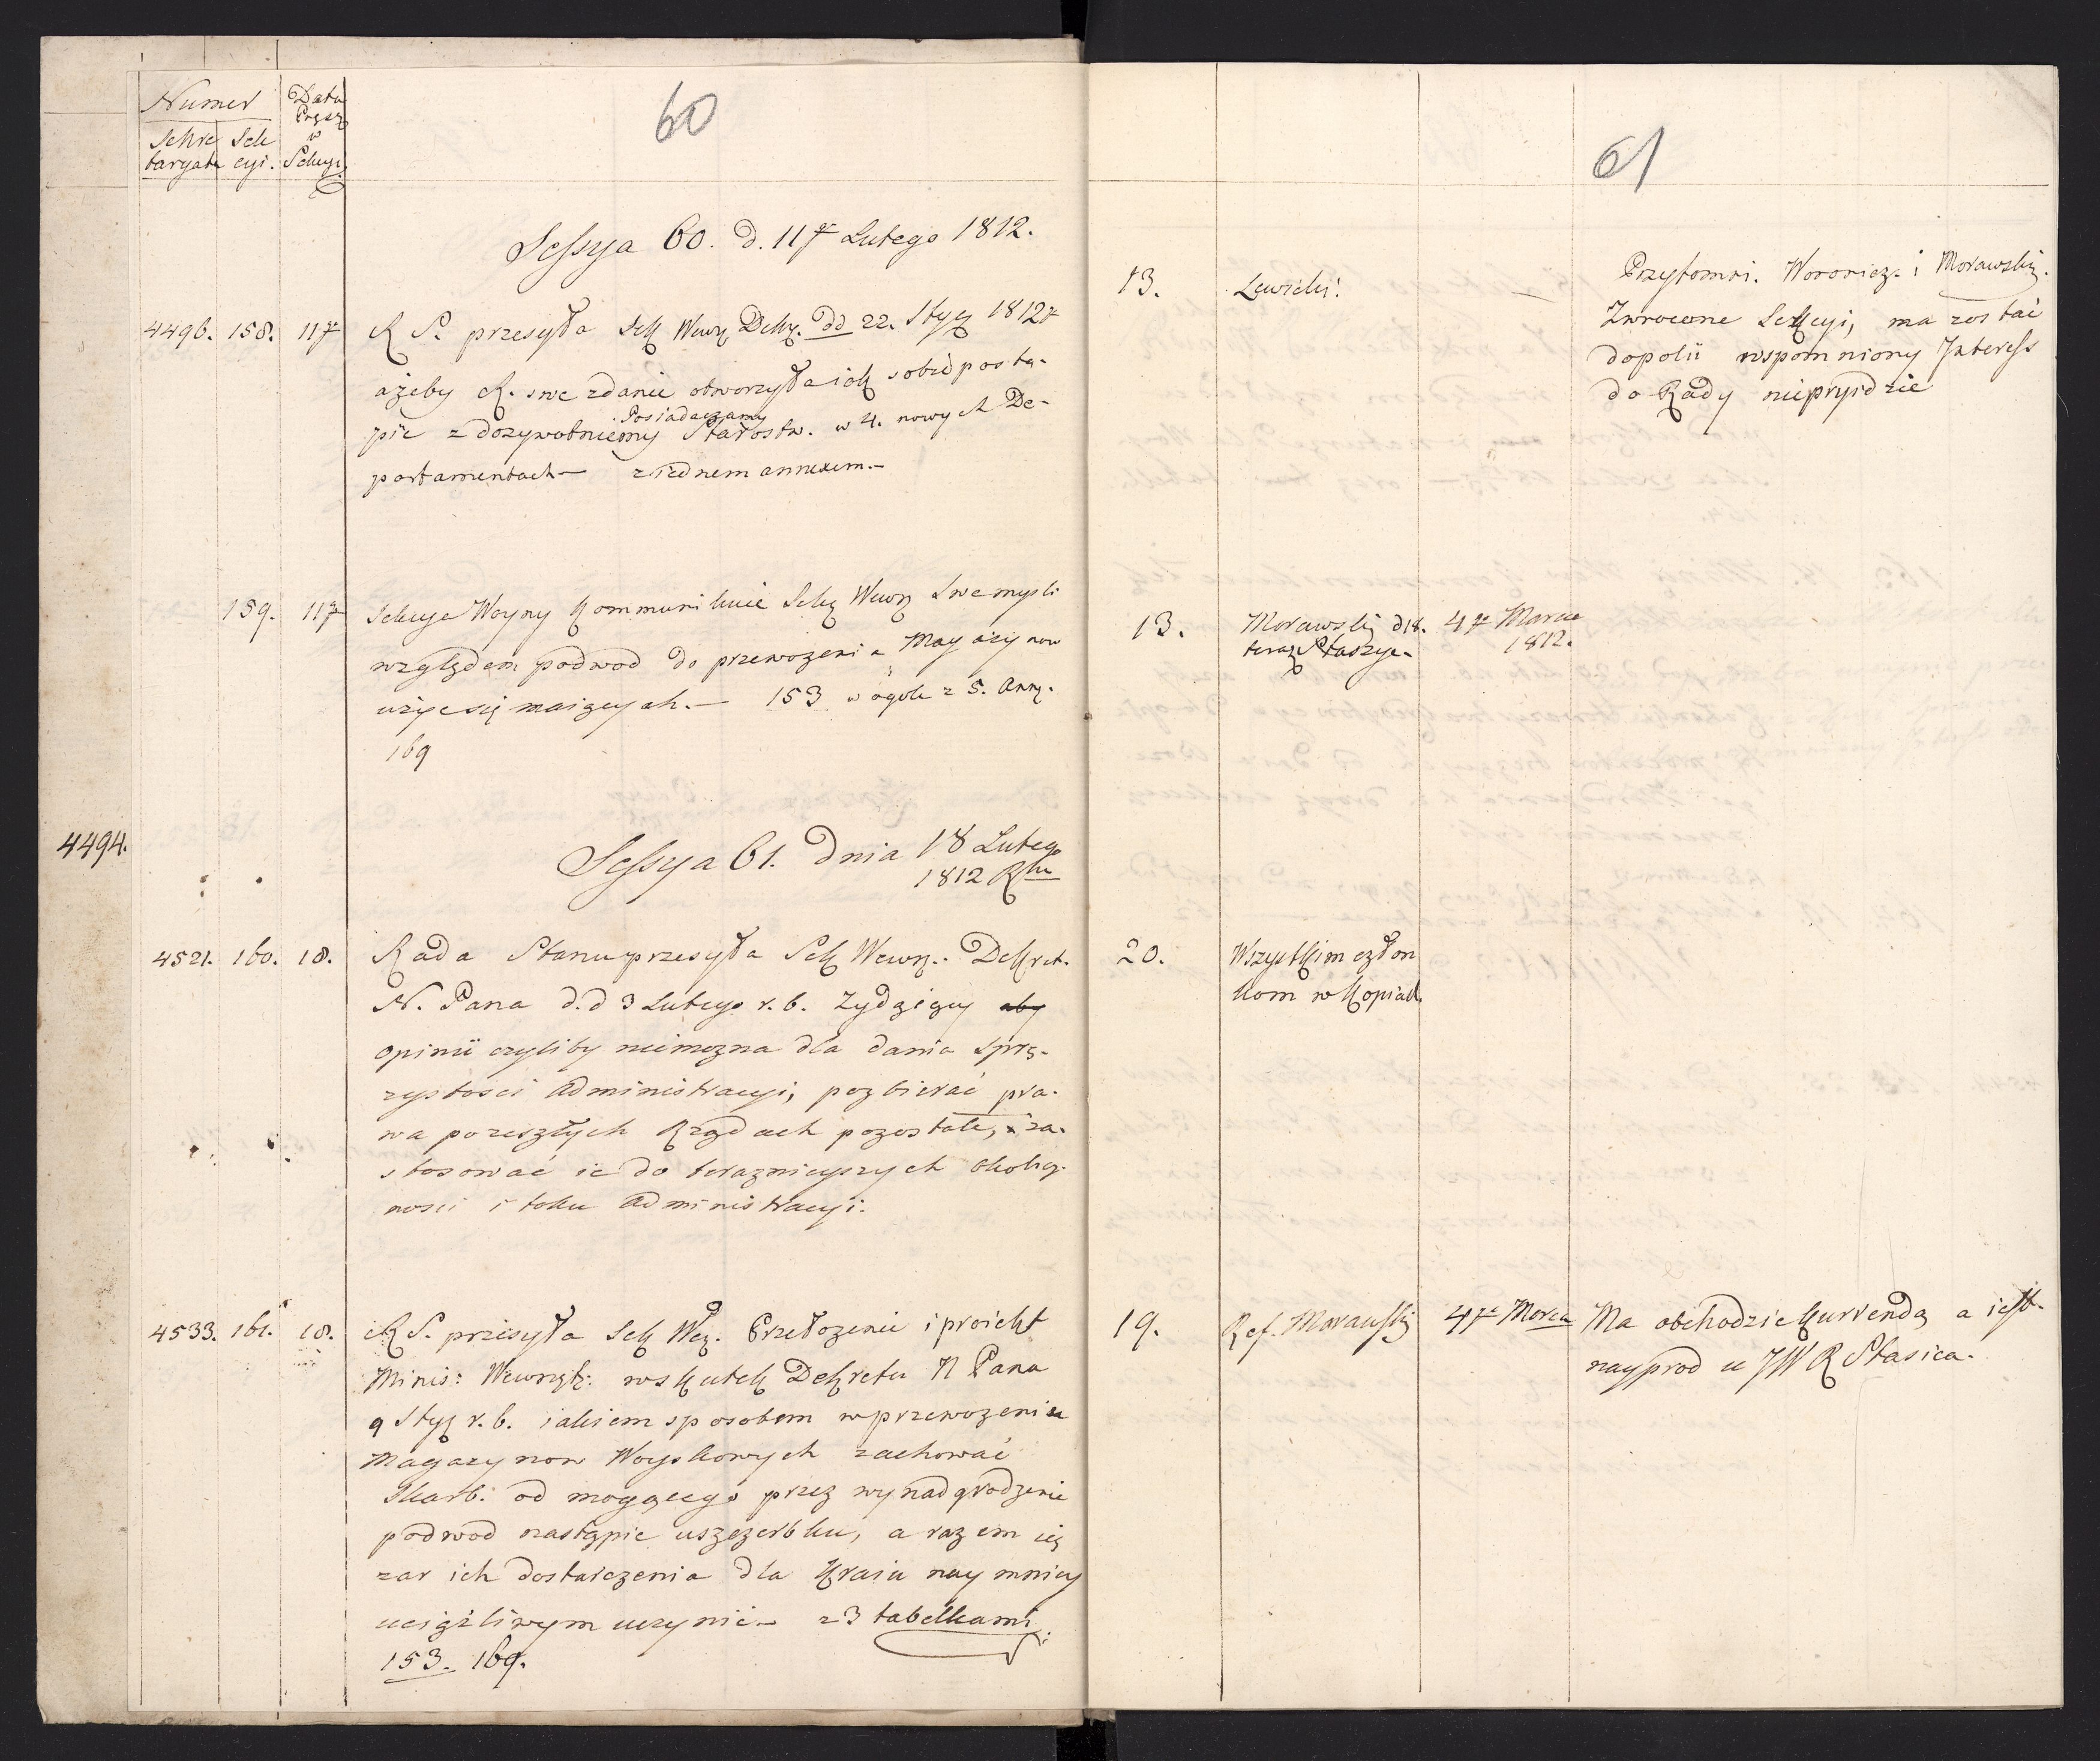 Numer
Data
Przesz
w
Sekcyi
Sekre
taryatu
Sek
cyi.
60
Sessya 60. d. 11go Lutego 1812.
4496. 158. 11go
R S. przesyła Sek Wewn Dekr. dd 22. Stycz 1812r
ażeby R. swe zdanie otworzyła iak sobie postą-
Posiadaczamy
pić z dozywotniemy Starostw. w 4. nowych De-
partamentach — z iednem annexem. —
159. 11go
Sekcya Woyny kommunikuie Sekc Wewn Swe mysli
względem podwod do przewozenia Magazynow
użyc się maiących. — 153 w ogole z 5. Anny.
169
4494.
Sessya 61. Dnia 18 Lutego
1812 Rku
4521. 160. 18.
Rada Stanu przesyła Sek Wewn. Dekret.
N. Pana d. d 3 Lutego r. b. Żydzący aby
opinii czyliby niemozna dla dania Sprę-
zystosci administracyi, pozbierać pra-
wa po zeszłych Rządach pozostałe, i za-
stosować ie do teraznieyszych okolicz-
nosci i toku administracyi.
4533. 161. 18.
R S. przesyła Sek Wez. Przełozenie i proiekt
Minis: Wewnętr: wskutek Dekretu N Pana
9 Stycz r. b. iakiem sposobem w przewozeniu
Magazynow Woyskowych zachować
Skarb. od mogącego przez wynadgrodzenie
podwod nastąpic uszczerbku, a razem cię
zar ich dostarczenia dla Kraiu nay mniey
uciążliwym uczynić — z 3 tabelkami:
153. 169.
61
13. Lewicki. —
Przytomni. Woronicz. i Morawski.
Zwrocone Sekcyi, ma zostać
dopoki wspomniony Interess
do Rady nieprzyidzie
13. Morawski d 18. 4go Marca
teraz Staszyc. 1812.
20. Wszystkim człon
kom w kopiach.
19. Ref. Morawski 4go Marca Ma obchodzic kurrendą a iest.
nayprod u JW R Stasica.